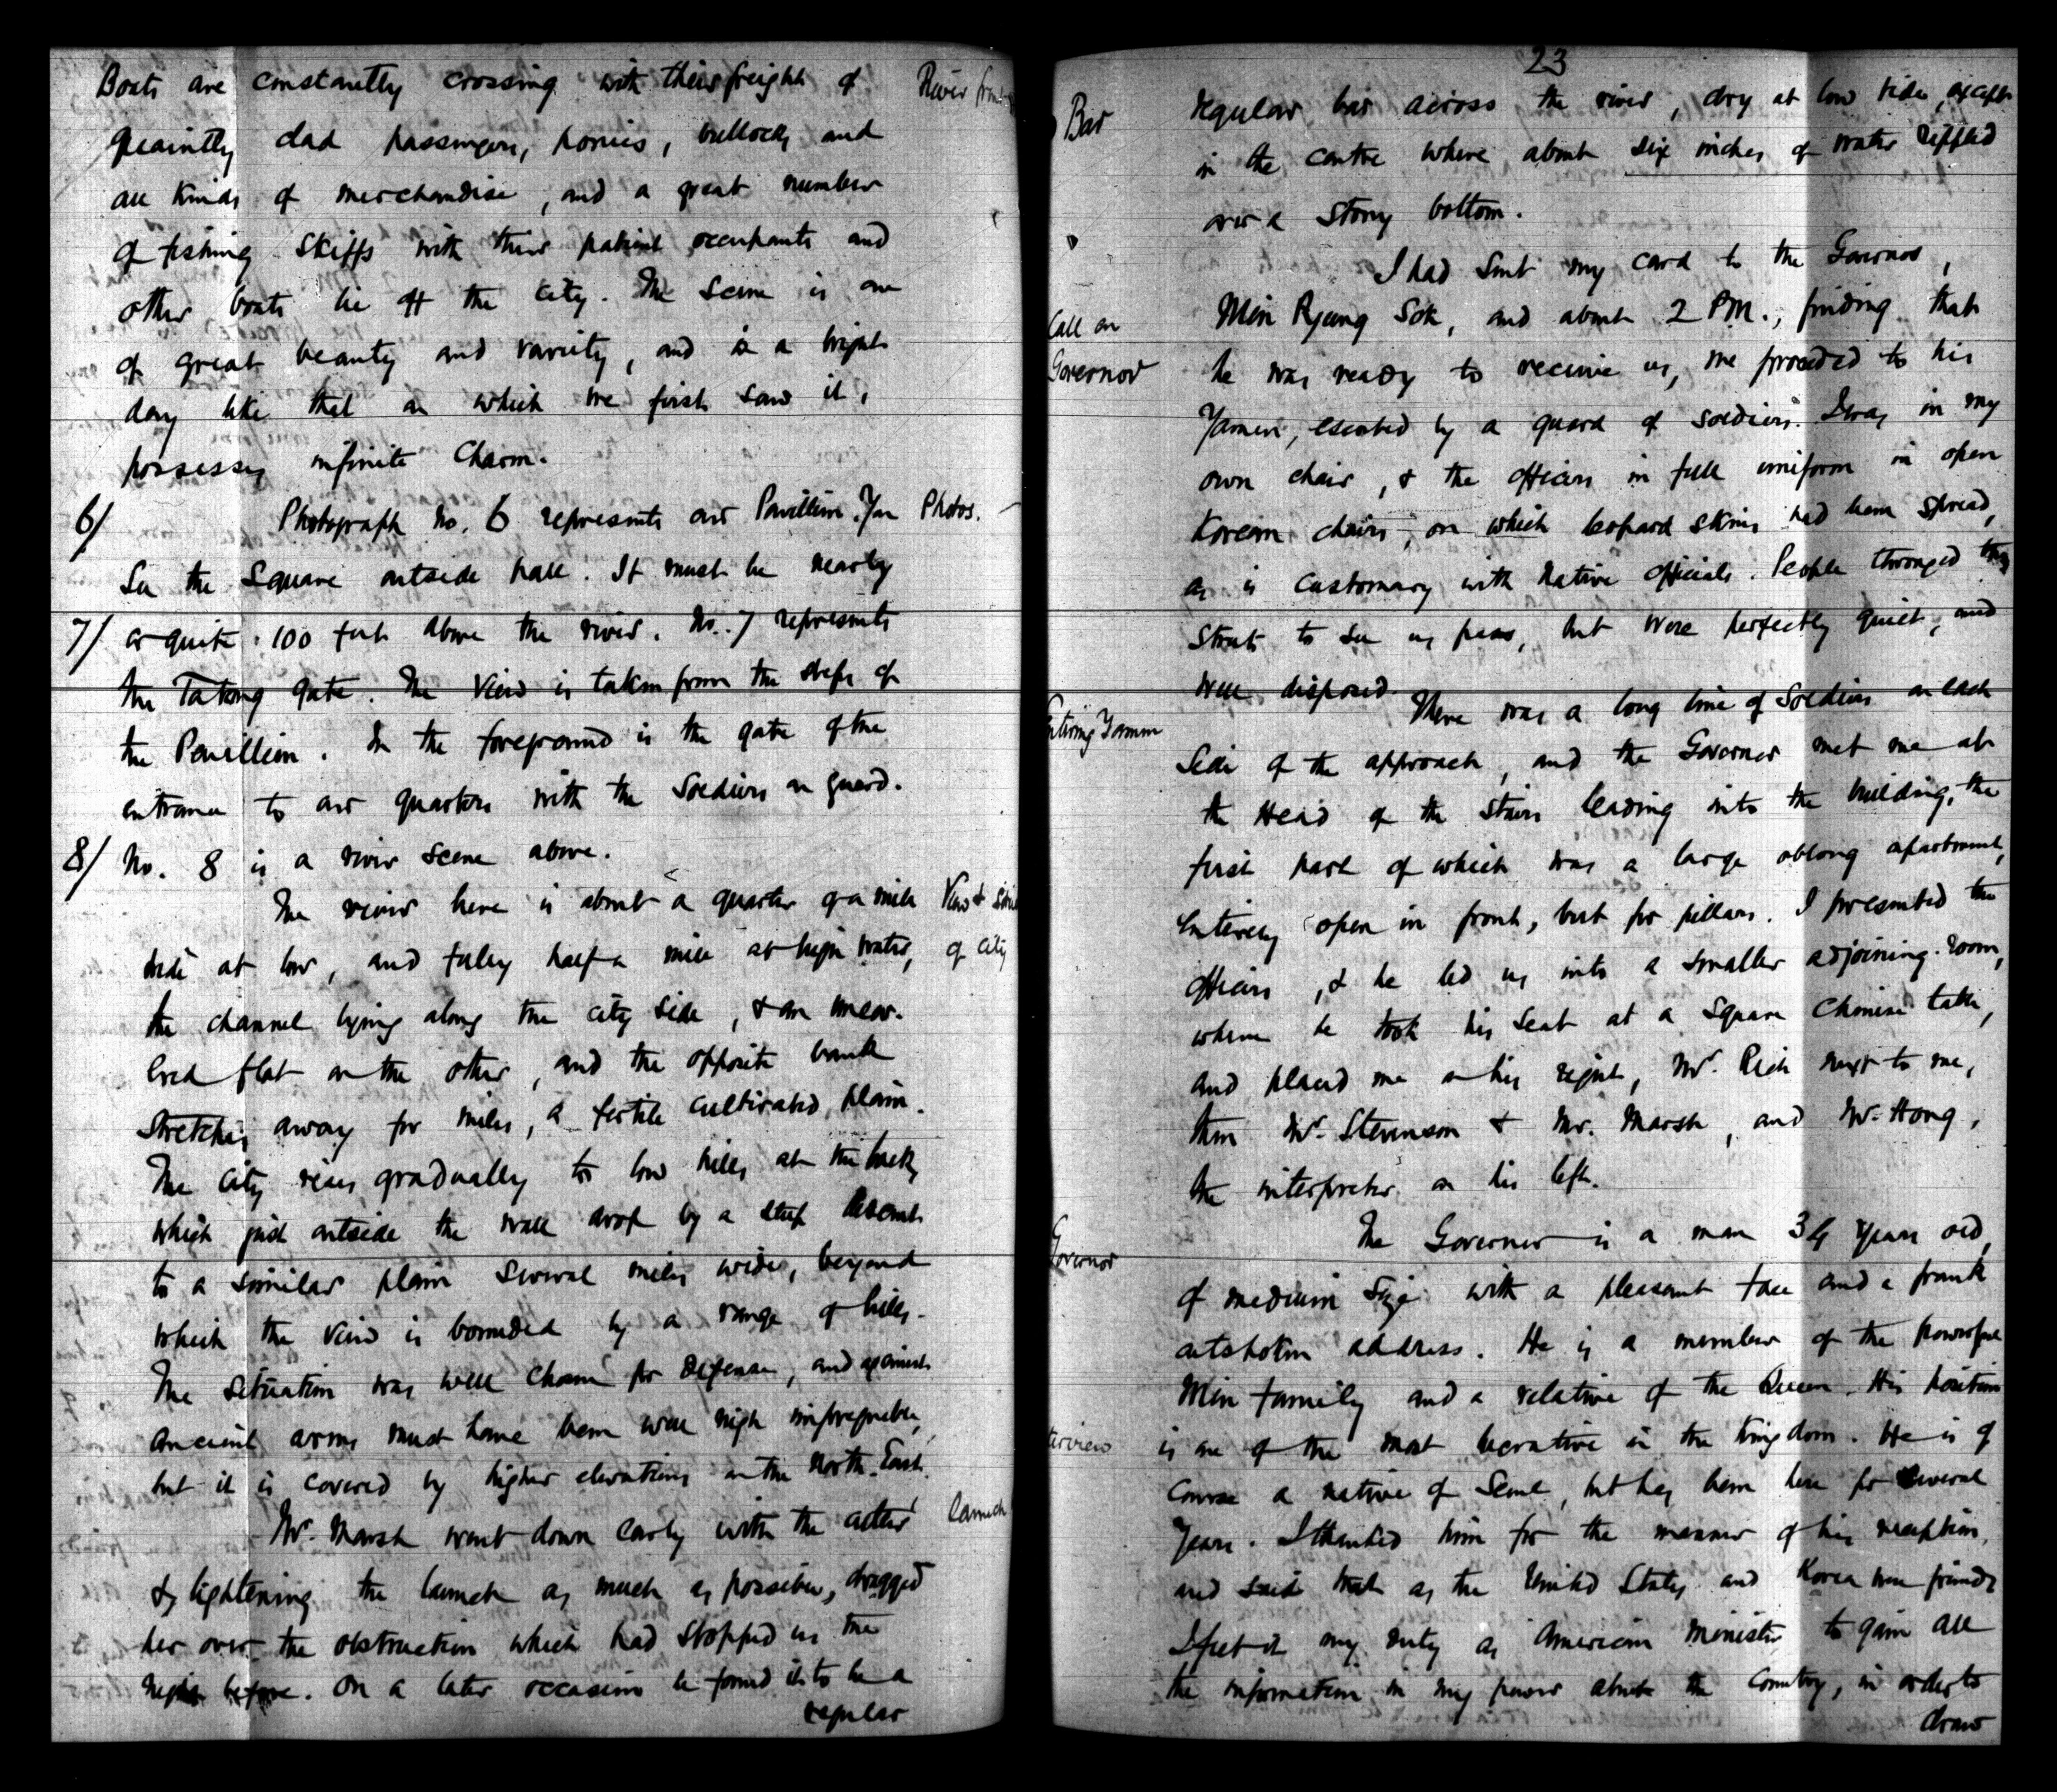 Boats are constantly crossing with their freight of
River front
quaintly clad passengers, ponies, bullocks and
all kinds of merchandise, and a great number
of fishing skiffs with their patient occupants and
other boats lie off the city. The scene is one
of great beauty and variety, and in a bright
day like that on which we first saw it,
possesses infinite charm.
6/ Photograph No. 6 represents our Pavillion. You
Photos.
See the square outside hall. It must be nearly
7/ or quite 100 feet above the river. No. 7 represents
the Tatong gate. The view is taken from the steps of
the Pavillion. In the foreground is the gate of the
entrance to our quarters with the soldiers on guard.
8/ No. 8 is a river scene above.
The river here is about a quarter of a mile
View &
of city
wide at low, and fully half a mile at high water,
the channel lying along the city side, & an uncov-
ered flat on the other, and the opposite bank
stretches away for miles, a fertile cultivated plain.
The city rises gradually to low hills at the back,
which just outside the wall drop by a steep descent
to a similar plain several miles wide, beyond
which the view is bounded by a range of hills.
The situation was well chosen for defense, and against
ancient arms must have been well nigh impregnable,
but it is covered by higher elevations on the North East.
Mr. Marsh went down early with the cutter
Launch
& lightening the launch as much as possible, dragged
her over the obstruction which had stopped us the
night before. On a later occasion he found it to be a
regular
23
Bar
regular bar across the river, dry at low tide, except
in the centre where about six inches of water rippled
over a stony bottom.
I had sent my card to the Governor,
Call on
Governor
Min Pyung Sok, and about 2 P.M., finding that
he was ready to receive us, we proceeded to his
Yamen, escorted by a guard of soldiers. I was in my
own chair, & the officers in full uniform in open
Korean chairs, on which leopard skins had been spread,
as is customary with native officials. People thronged the
streets to see us pass, but were perfectly quiet, and
well disposed.
There was a long line of soldiers on each
Entering Yamen
side of the approach, and the Governor met me at
the head of the stairs leading into the building, the
first part of which was a large oblong apartment,
entirely open in front, but for pillars. I presented the
officers, & he led us into a smaller adjoining room,
where he took his seat at a square Chinese table,
and placed me on his right, Mr. Rich next to me,
then Mr. Stevenson & Mr. Marsh, and Mr. Hong,
the interpreter on his left.
The Governor is a man 34 years old,
Governor
of medium size with a pleasant face and a frank
outspoken address. He is a member of the powerful
Min family and a relative of the Queen. His position
is one of the most lucrative in the Kingdom. He is of
course a native of Seoul, but has been here for several
years. I thanked him for the manner of his reception,
and said that as the United States and Korea were friends
I felt it my duty as American Minister to gain all
the information in my power about the country, in order to
draw